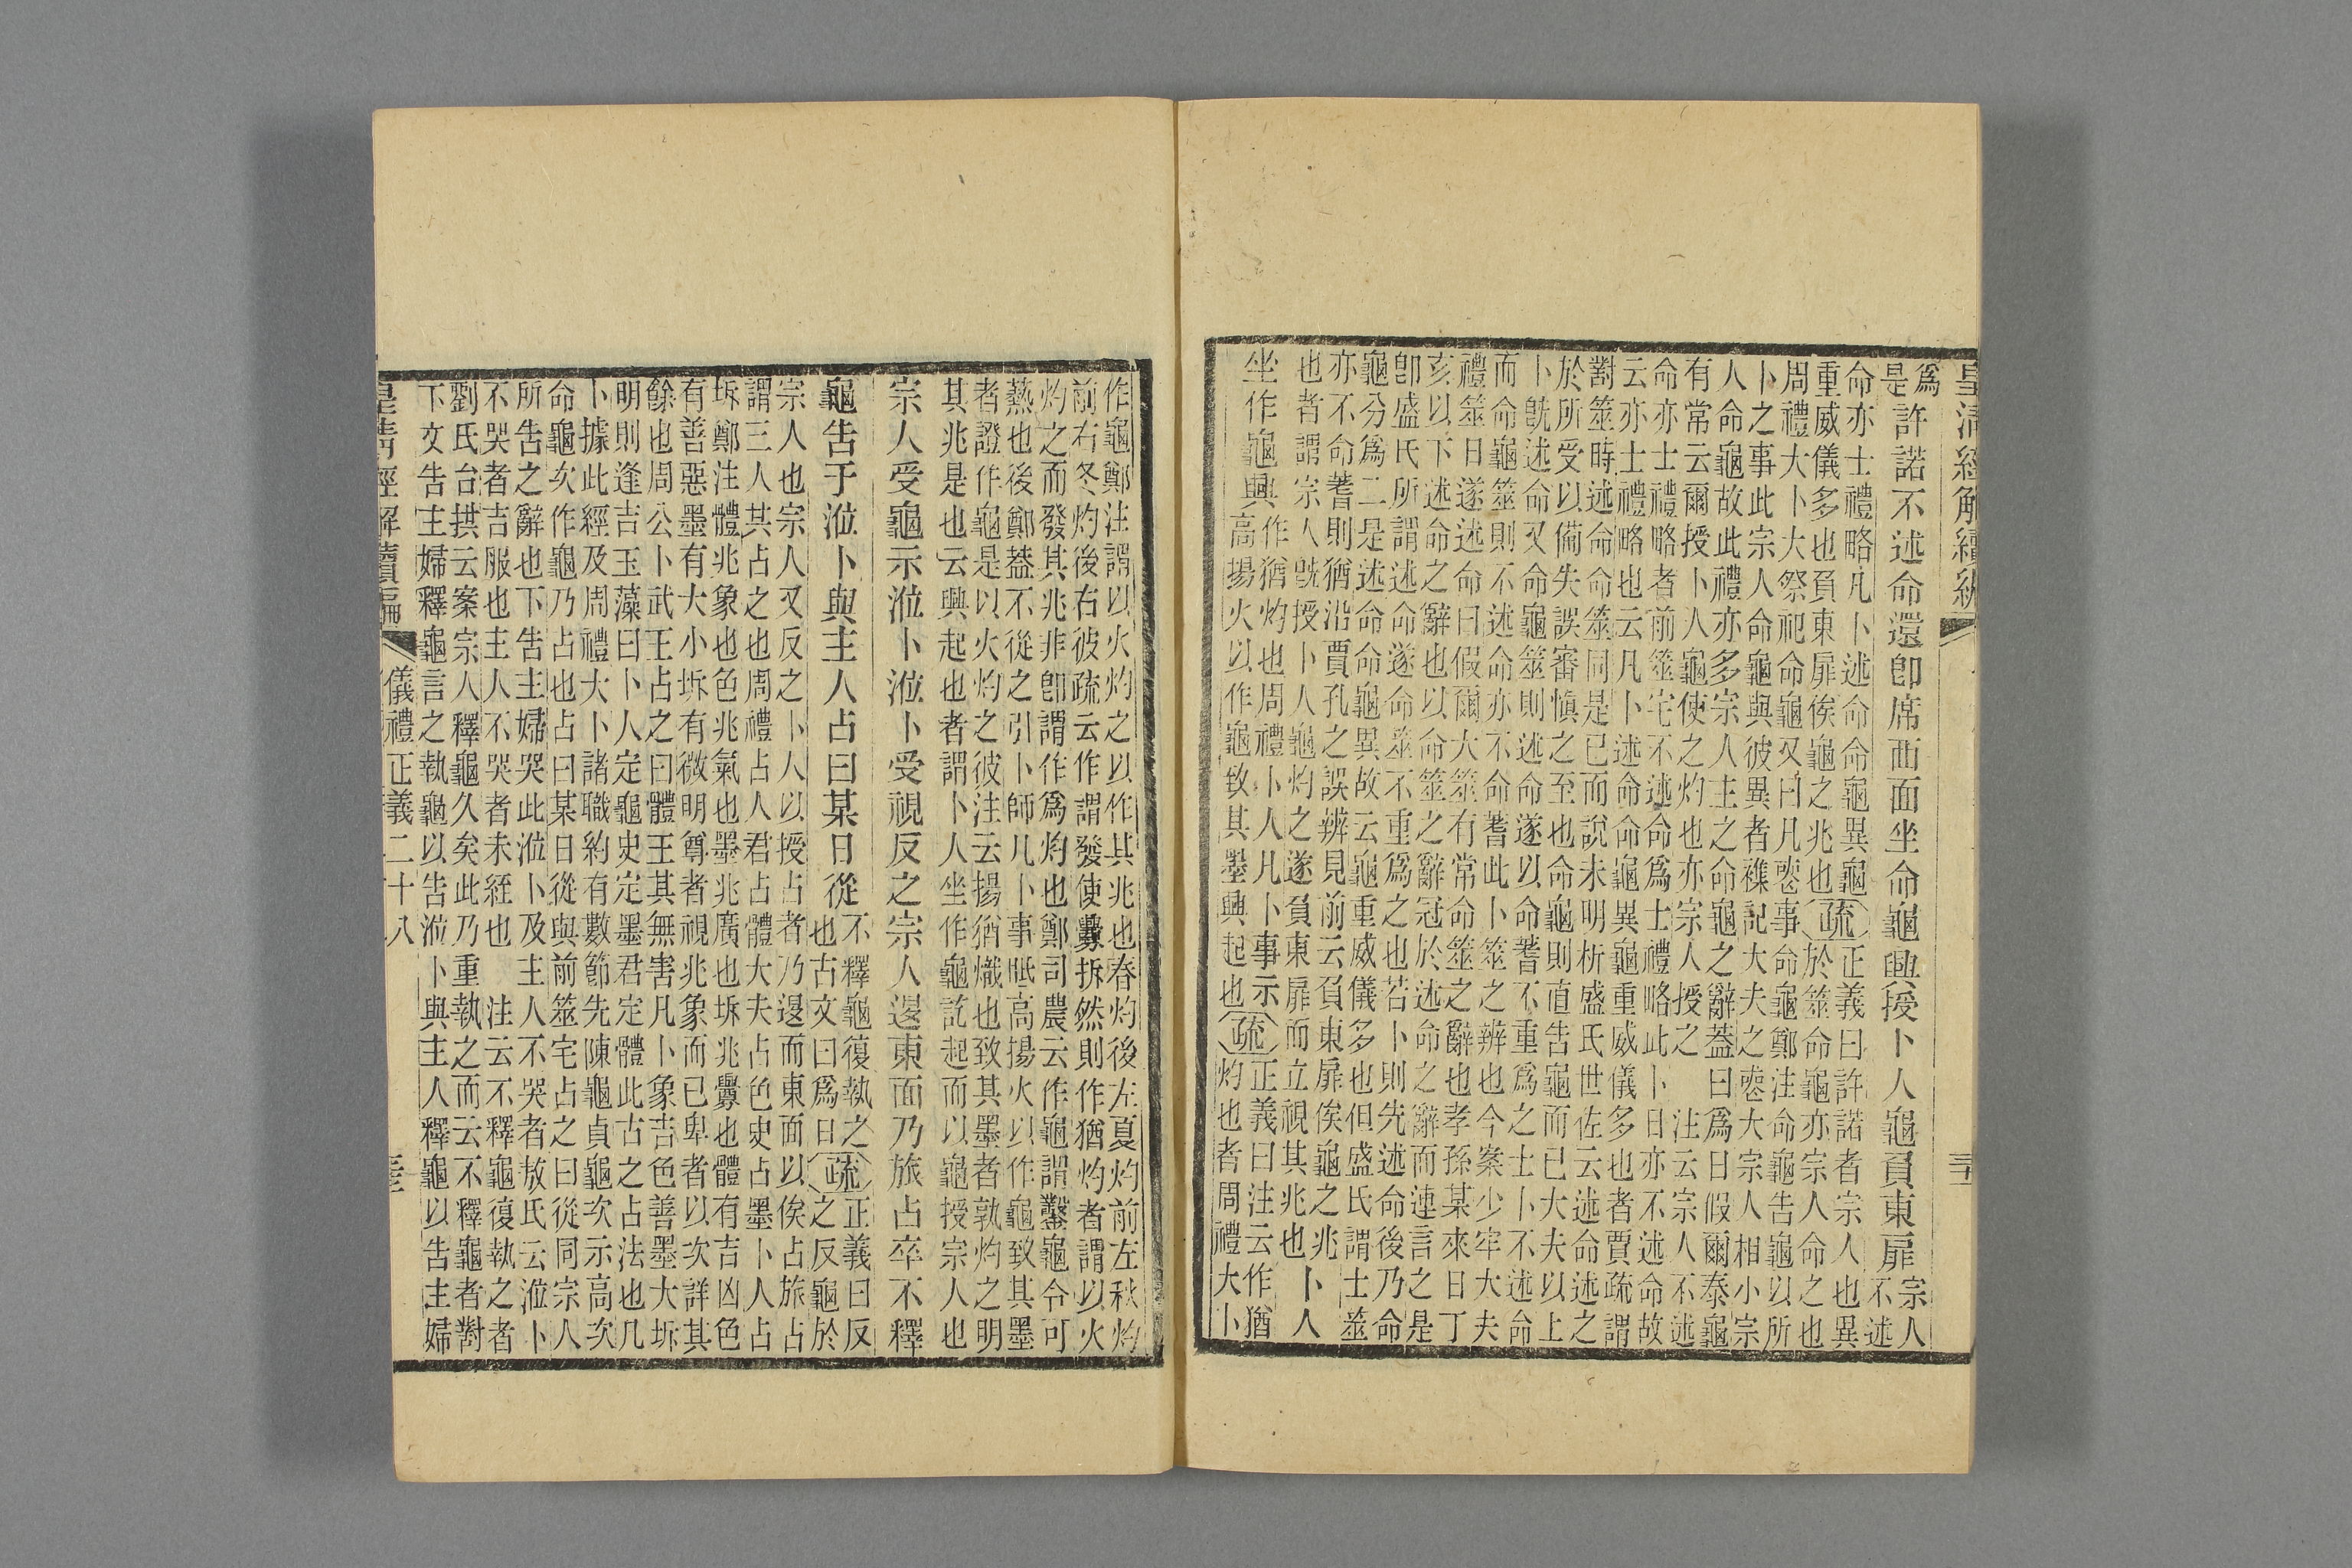 皇清經解續編
三十
爲
是
許諾不述命還卽席西面坐命龜興授卜人龜負東扉
宗人
不述
命亦士禮略凡卜述命命龜異龜
重威儀多也負東扉俟龜之兆也
疏
正義曰許諾者宗人也異
於筮命龜亦宗人命之也
周禮大卜大祭祀命龜又曰凡喪事命龜鄭注命龜告龜以所
卜之事此宗人命龜與彼異者襍記大夫之喪大宗人相小宗
人命龜故此禮亦多宗人主之命龜之辭蓋曰爲日假爾泰龜
有常云爾授卜人龜使之灼也亦宗人授之　注云宗人不述
命亦士禮略者前筮宅不述命爲士禮略此卜日亦不述命故
云亦士禮略也云凡卜述命命龜異龜重威儀多也者賈疏謂
對筮時述命命筮同是已而說未明析盛氏世佐云述命述之
於所受以備失誤審愼之至也命龜則直告龜而已大夫以上
卜旣述命又命龜筮則述命遂以命蓍不重爲之士卜不述命
而命龜筮則不述命亦不命蓍此卜筮之辨也今案少牢大夫
禮筮日遂述命曰假爾大筮有常命筮之辭也孝孫某來日丁
亥以下述命之辭也以命筮之辭冠於述命之辭而連言之是
卽盛氏所謂述命遂命筮不重爲之也若卜則先述命後乃命
龜分爲二是述命命龜異故云龜重威儀多也但盛氏謂士筮
亦不命蓍則猶沿賈孔之誤辨見前云負東扉俟龜之兆
也者謂宗人旣授卜人龜灼之遂負東扉而立視其兆也
卜人
坐作龜興
作猶灼也周禮卜人凡卜事示
高揚火以作龜致其墨興起也
疏
正義曰注云作猶
灼也者周禮大卜
作龜鄭注謂以火灼之以作其兆也春灼後左夏灼前左秋灼
前右冬灼後右彼疏云作謂發使釁拆然則作猶灼者謂以火
灼之而發其兆非卽謂作爲灼也鄭司農云作龜謂鑿龜令可
爇也後鄭葢不從之引卜師凡卜事眡高揚火以作龜致其墨
者證作龜是以火灼之彼注云揚猶熾也致其墨者孰灼之明
其兆是也云興起也者謂卜人坐作龜訖起而以龜授宗人也
宗人受龜示涖卜涖卜受視反之宗人退東面乃旅占卒不釋
龜告于涖卜與主人占曰某日從
不釋龜復執之
也古文曰爲日
疏
正義曰反
之反龜於
宗人也宗人又反之卜人以授占者乃退而東面以俟占旅占
謂三人其占之也周禮占人君占體大夫占色史占墨卜人占
坼鄭注體兆象也色兆氣也墨兆廣也坼兆釁也體有吉凶色
有善惡墨有大小坼有微明尊者視兆象而已卑者以次詳其
餘也周公卜武王占之曰體王其無害凡卜象吉色善墨大坼
明則逢吉玉藻曰卜人定龜史定墨君定體此古之占法也凡
卜據此經及周禮大卜諸職約有數節先陳龜貞龜次示高次
命龜次作龜乃占也占曰某日從與前筮宅占之曰從同宗人
所告之辭也下告主婦哭此涖卜及主人不哭者敖氏云涖卜
不哭者吉服也主人不哭者未絰也　注云不釋龜復執之者
劉氏台拱云案宗人釋龜久矣此乃重執之而云不釋龜者對
下文告主婦釋龜言之執龜以告涖卜與主人釋龜以告主婦
皇清經解續編
儀禮正義二十八